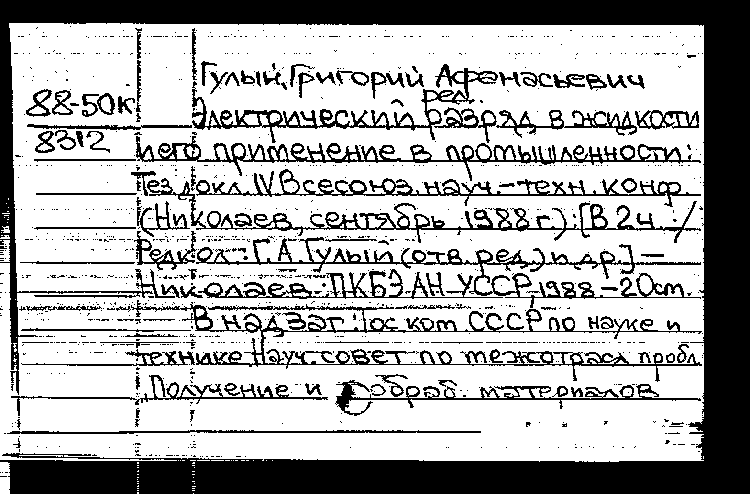 Гулый, Григорий Афанасьевич
ред.
88-50к
8312
Электрический разряд в жидкости
и его применение в промышленности:
Тез. докл. IV Всесоюз. науч.-техн. конф.
(Николаев, сентябрь, 1988 г.): [В 2 ч. /
Редкол.: Г.А. Гулый (отв. ред.) и др.] —
Николаев: ПКБЭ АН УССР, 1988 – 20 см.
В надзаг.: Гос ком СССР по науке и
технике. Науч. совет по межотрасл пробл.
„Получение и обраб. материалов